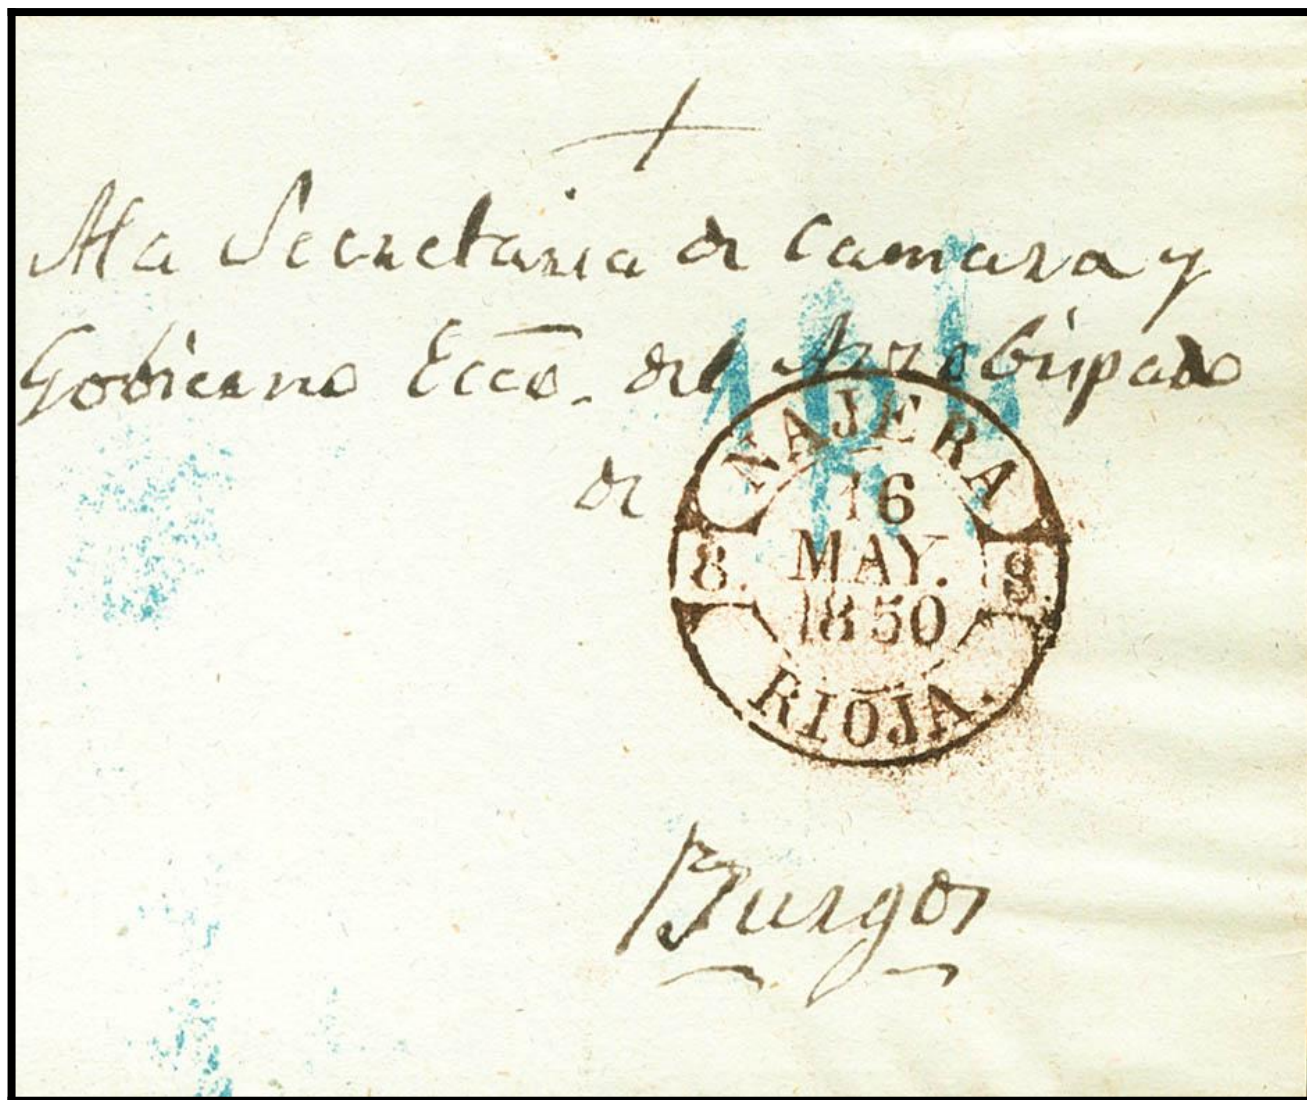 A la Secretaria de Camara y
Gobierno Ecco. del Arzobispado
de
NAJERA
16
8. MAY. 8.
1850
RIOJA.
Burgos